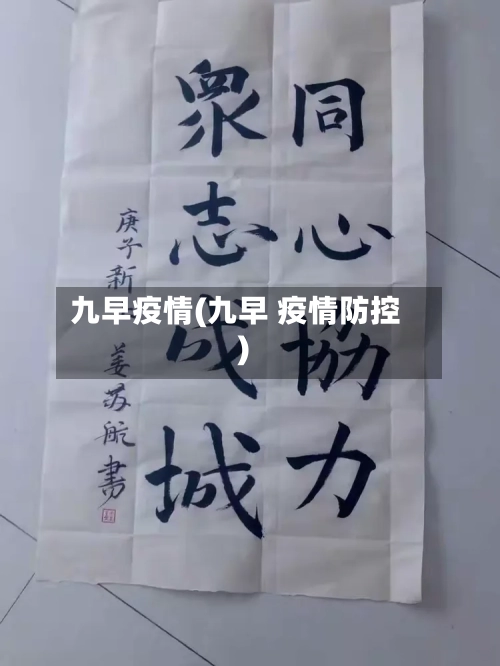 同心協力
眾志成城
庚子新
姜苏航書
九早疫情(九早 疫情防控
)